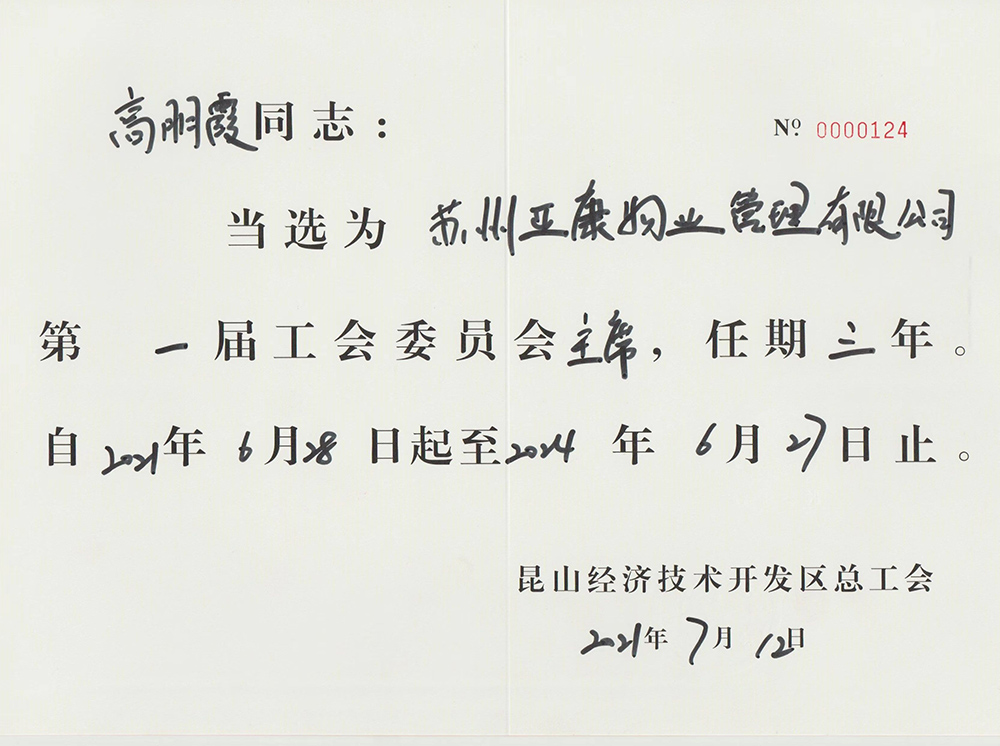 高明霞同志：
№ 0000124
当选为 苏州亚康物业管理有限公司
第 一届工会委员会主席，任期三年。
自2021年6月28日起至2024年6月27日止。
昆山经济技术开发区总工会
2021年7月12日